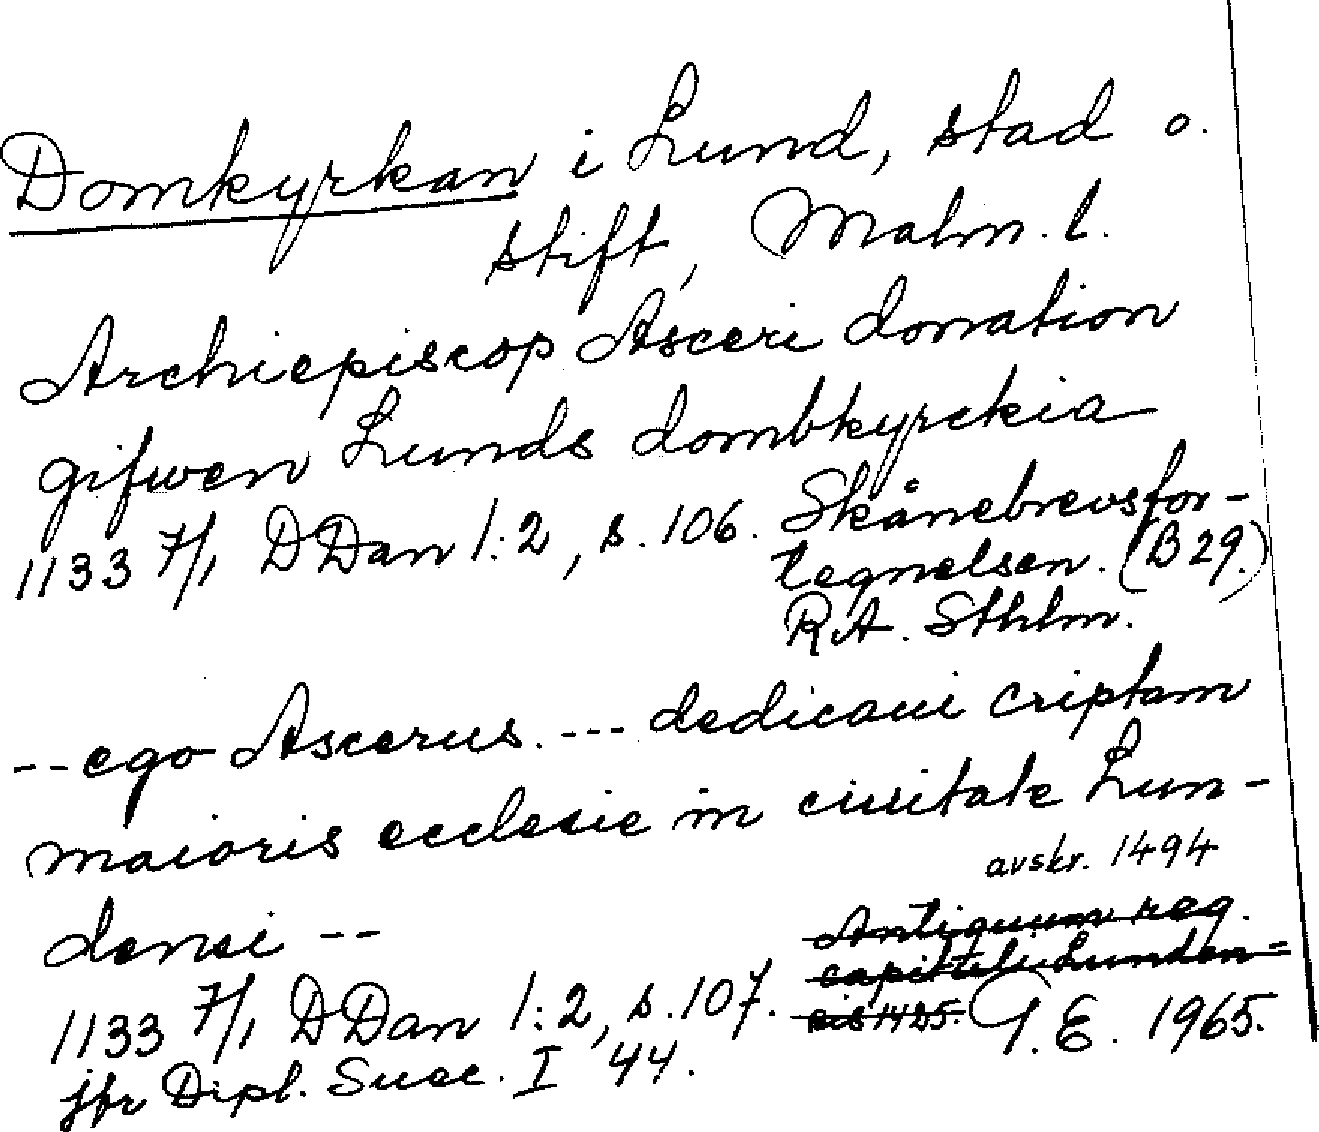 Domkyrkan i Lund, stad o.
stift, Malm. l.
Archiepiscop Asceri donation
gifwen Lunds dombkyrckia
1133 7/1 DDan 1:2, s. 106. Skånebrevsfor-
tegnelsen. (B 29.)
R.A. Sthlm.
--ego Ascerus. --- dedicaui criptam
maioris ecclesie in ciuitate Lun-
avskr. 1494
densi --
Antiquum reg.
capituli Lunden=
sis 1425.
1133 7/1 DDan 1:2, s. 107. G.E. 1965.
jfr Dipl. Suec. I 44.